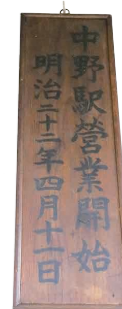 中野駅營業開始
明治二十二年四月十一日